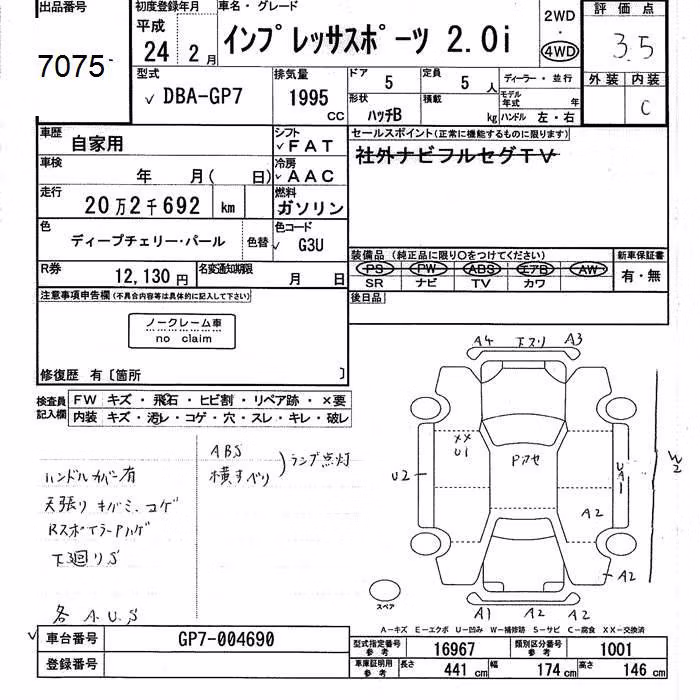 出品番号
7075
初度登録年月
平成
24年2月
車名・グレード
インプレッサスポーツ 2.0i
2WD
・
4WD
評価点
3.5
外装 内装
C
型式
DBA-GP7
排気量
1995
CC
ドア
5
定員
5人
形状
ハッチB
積載
kg
ディーラー・並行
モデル年式 年
ハンドル 左・右
車歴
自家用
シフト
FAT
車検
年 月( 日)
冷房
AAC
走行
20万2千692 km
燃料
ガソリン
色
ディープチェリー・パール
色替
色コード
G3U
R券
12,130円
名変通知期限
月 日
セールスポイント(正常に機能するものに限ります)
社外ナビフルセグTV
装備品(純正品に限り〇をつけてください)
PS PW ABS エアB AW
SR ナビ TV カワ
新車保証書
有・無
後日品
注意事項申告欄(不具合内容等は具体的に記入して下さい)
ノークレーム車
no claim
修復歴 有〔箇所 〕
検査員記入欄
FW キズ・飛石・ヒビ割・リペア跡・×要
内装 キズ・汚レ・コゲ・穴・スレ・キレ・破レ
ハンドルカバー有
天張りキバミ、コゲ
RスポイラーPハゲ
下廻りS
各A.U.S
ABS
横すべり
ランプ点灯
A4 下スリ A3
XX
U1
Pアセ
U2
UA1
W2
A2
A2
A1 A2 A2
スペア
A―キズ E―エクボ U―凹み W―補修跡 S―サビ C―腐食 XX―交換済
車台番号
GP7-004690
登録番号
型式指定番号 参考
16967
類別区分番号 参考
1001
車庫証明用 参考
長さ 441cm 幅 174cm 高さ 146cm